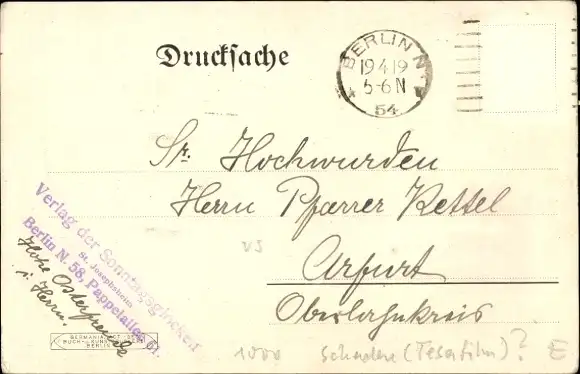 Drucksache
BERLIN N
19 4 19
5-6 N
54
Sr. Hochwürden
Herrn Pfarrer Kettel
Arfurt
Oberlahnkreis
Verlag der Sonntagsglocken
St. Josephsheim
Berlin N. 58, Pappelallee 61.
Hohe Osterfreude
i. Herrn.
GERMANIA
BUCH- u. KUNST
BERLIN
VS
1000 Schaden (Tesafilm)? E